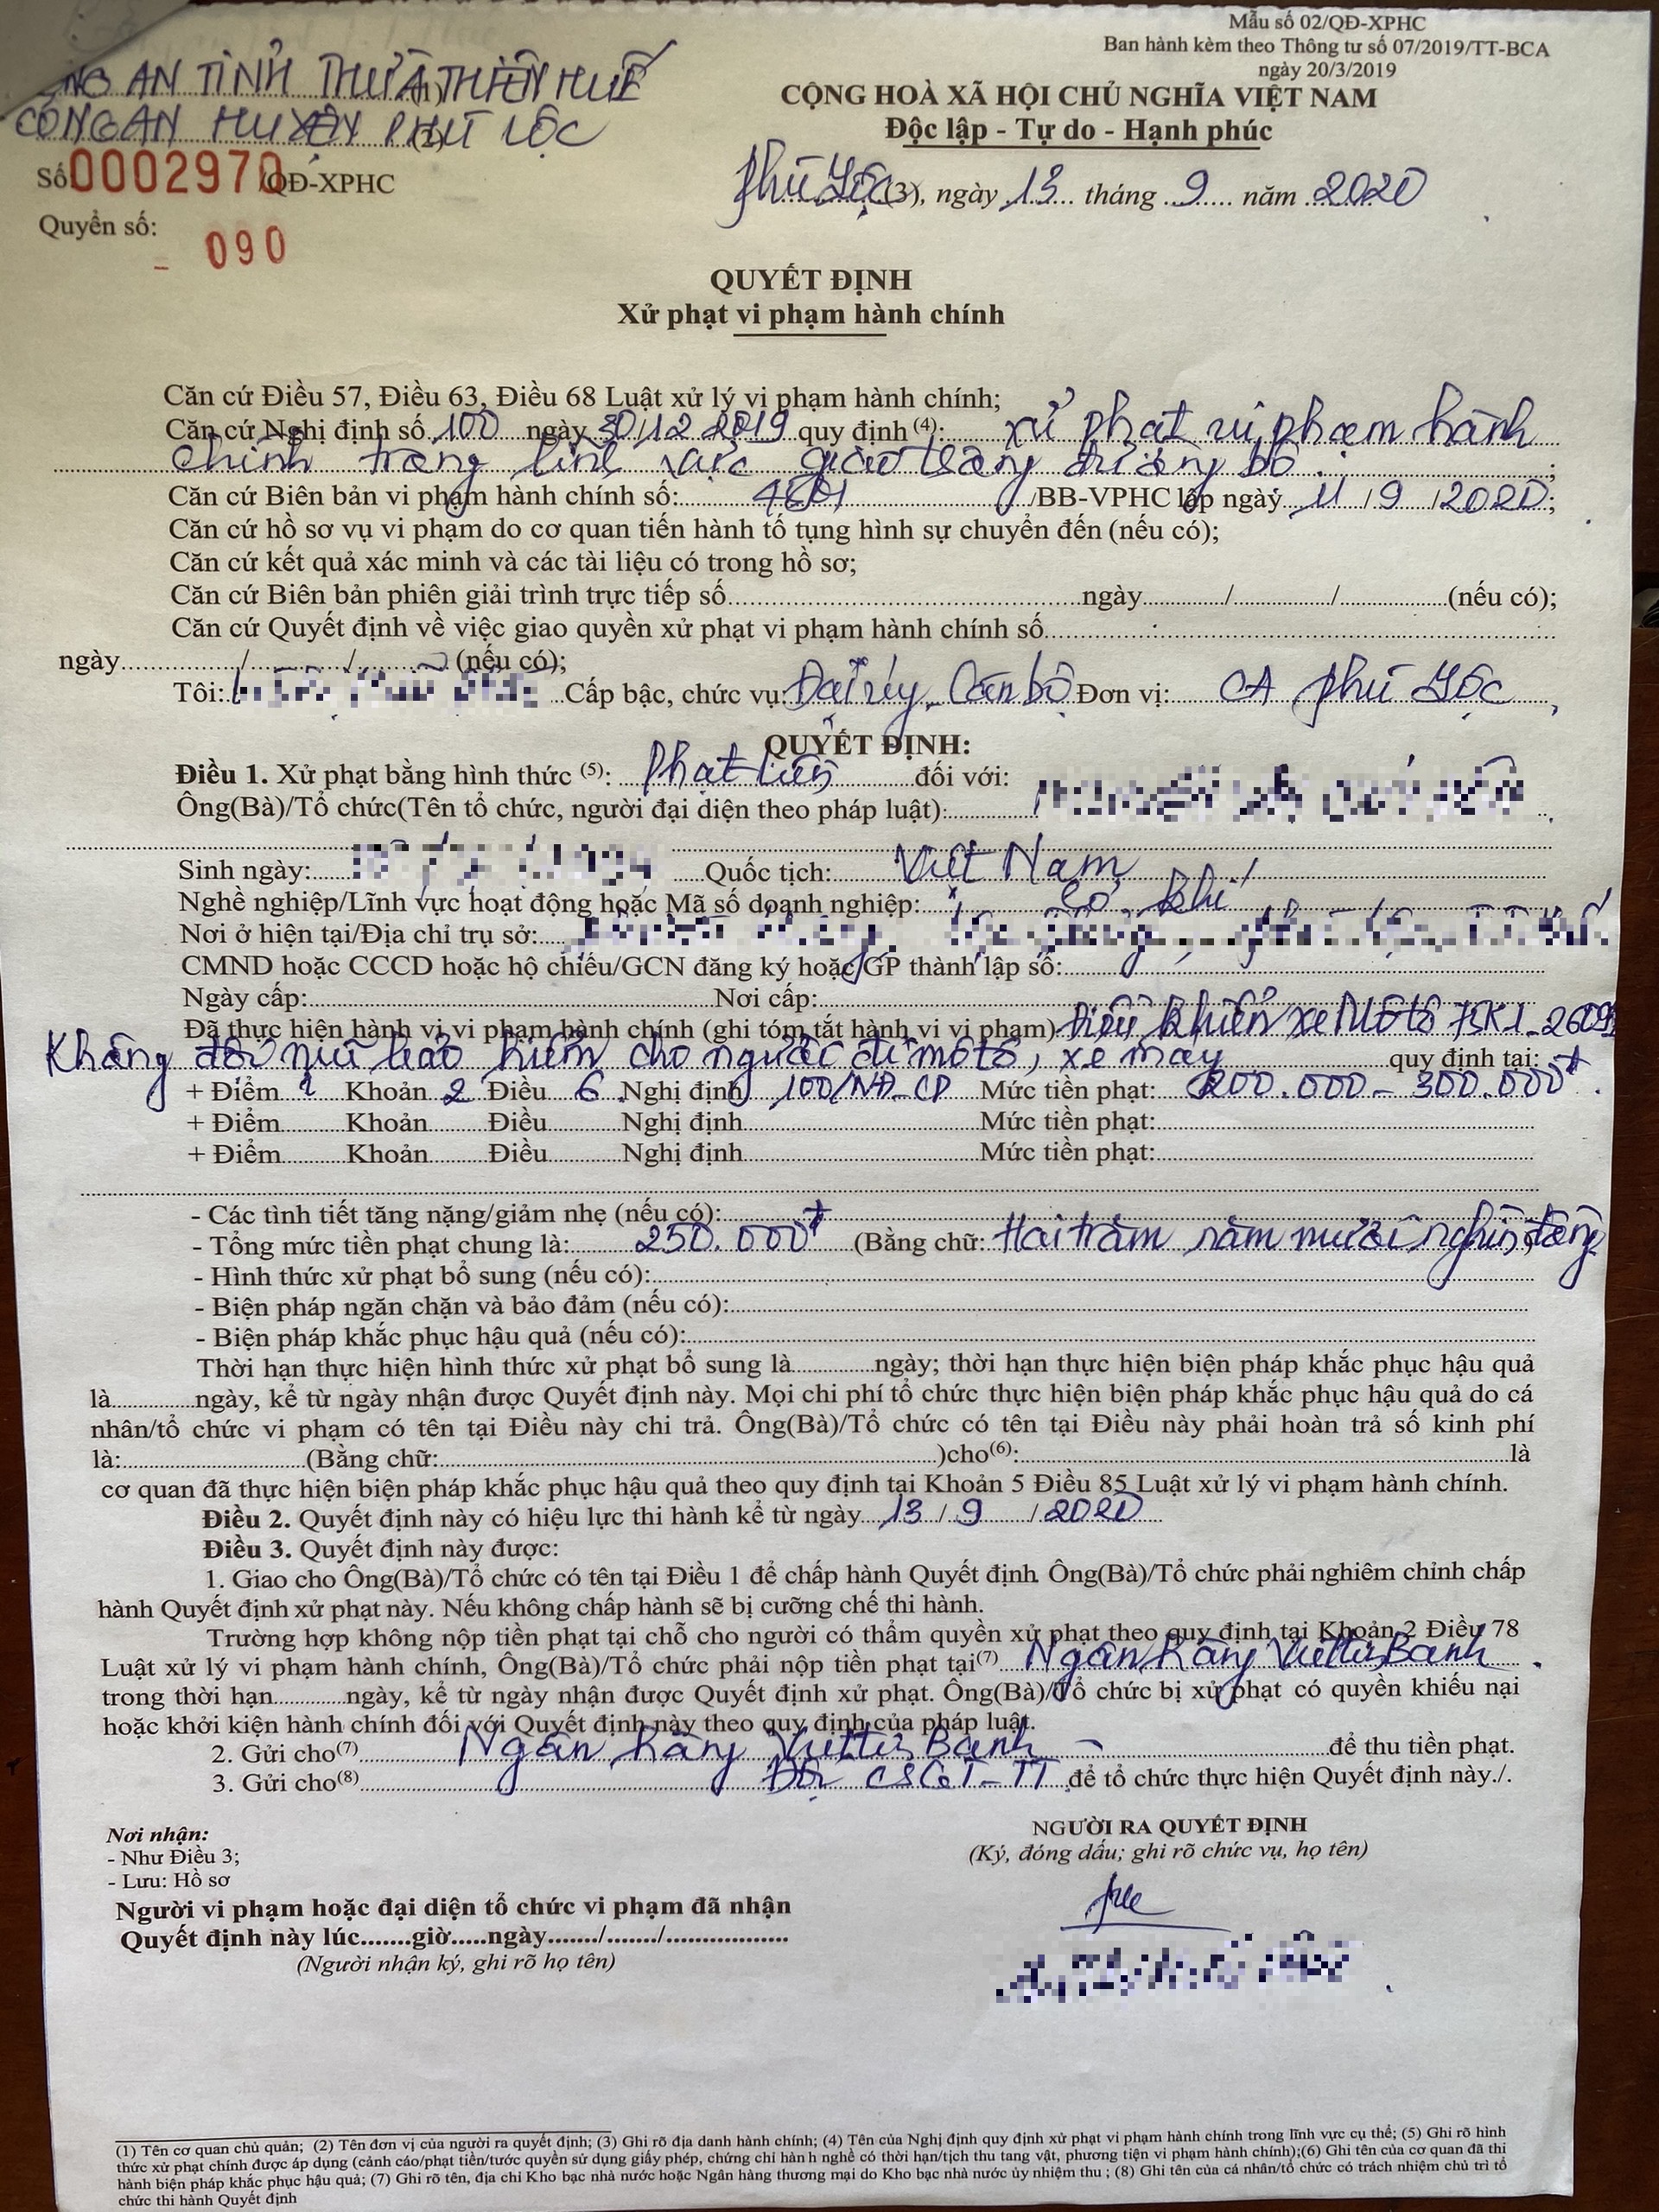 Mẫu số 02/QĐ-XPHC
Ban hành kèm theo Thông tư số 07/2019/TT-BCA
ngày 20/3/2019
NG AN TỈNH THỪA THIÊN HUẾ (1)
CÔNG AN HUYỆN PHÚ LỘC (2)
CỘNG HOÀ XÃ HỘI CHỦ NGHĨA VIỆT NAM
Độc lập - Tự do - Hạnh phúc
Số 0002970/QĐ-XPHC
Quyển số: 090
Phú Lộc (3), ngày 13 tháng 9 năm 2020
QUYẾT ĐỊNH
Xử phạt vi phạm hành chính
Căn cứ Điều 57, Điều 63, Điều 68 Luật xử lý vi phạm hành chính;
Căn cứ Nghị định số 100 ngày 30/12 2019 quy định (4): xử phạt vi phạm hành
chính trong lĩnh vực giao thông đường bộ. ;
Căn cứ Biên bản vi phạm hành chính số: /BB-VPHC lập ngày 11/9/2020;
Căn cứ hồ sơ vụ vi phạm do cơ quan tiến hành tố tụng hình sự chuyển đến (nếu có);
Căn cứ kết quả xác minh và các tài liệu có trong hồ sơ;
Căn cứ Biên bản phiên giải trình trực tiếp số ngày / / (nếu có);
Căn cứ Quyết định về việc giao quyền xử phạt vi phạm hành chính số
ngày / / (nếu có);
Tôi: Cấp bậc, chức vụ: Đại úy - Cán bộ Đơn vị: CA Phú Lộc
QUYẾT ĐỊNH:
Điều 1. Xử phạt bằng hình thức (5): Phạt tiền đối với:
Ông(Bà)/Tổ chức(Tên tổ chức, người đại diện theo pháp luật):
Sinh ngày: Quốc tịch: Việt Nam
Nghề nghiệp/Lĩnh vực hoạt động hoặc Mã số doanh nghiệp:
Nơi ở hiện tại/Địa chỉ trụ sở:
CMND hoặc CCCD hoặc hộ chiếu/GCN đăng ký hoặc GP thành lập số:
Ngày cấp: Nơi cấp:
Đã thực hiện hành vi vi phạm hành chính (ghi tóm tắt hành vi vi phạm) Điều khiển xe Mô tô
Không đội mũ bảo hiểm cho người đi mô tô, xe máy quy định tại:
+ Điểm i Khoản 2 Điều 6 Nghị định 100/NĐ-CP Mức tiền phạt: 200.000 - 300.000đ.
+ Điểm Khoản Điều Nghị định Mức tiền phạt:
+ Điểm Khoản Điều Nghị định Mức tiền phạt:
- Các tình tiết tăng nặng/giảm nhẹ (nếu có):
- Tổng mức tiền phạt chung là: 250.000đ (Bằng chữ: Hai trăm năm mươi nghìn đồng
- Hình thức xử phạt bổ sung (nếu có):
- Biện pháp ngăn chặn và bảo đảm (nếu có):
- Biện pháp khắc phục hậu quả (nếu có):
Thời hạn thực hiện hình thức xử phạt bổ sung là ngày; thời hạn thực hiện biện pháp khắc phục hậu quả
là ngày, kể từ ngày nhận được Quyết định này. Mọi chi phí tổ chức thực hiện biện pháp khắc phục hậu quả do cá
nhân/tổ chức vi phạm có tên tại Điều này chi trả. Ông(Bà)/Tổ chức có tên tại Điều này phải hoàn trả số kinh phí
là: (Bằng chữ: )cho(6): là
cơ quan đã thực hiện biện pháp khắc phục hậu quả theo quy định tại Khoản 5 Điều 85 Luật xử lý vi phạm hành chính.
Điều 2. Quyết định này có hiệu lực thi hành kể từ ngày 13/9/2020
Điều 3. Quyết định này được:
1. Giao cho Ông(Bà)/Tổ chức có tên tại Điều 1 để chấp hành Quyết định. Ông(Bà)/Tổ chức phải nghiêm chỉnh chấp
hành Quyết định xử phạt này. Nếu không chấp hành sẽ bị cưỡng chế thi hành.
Trường hợp không nộp tiền phạt tại chỗ cho người có thẩm quyền xử phạt theo quy định tại Khoản 2 Điều 78
Luật xử lý vi phạm hành chính, Ông(Bà)/Tổ chức phải nộp tiền phạt tại(7) Ngân hàng ViettinBanh
trong thời hạn ngày, kể từ ngày nhận được Quyết định xử phạt. Ông(Bà)/Tổ chức bị xử phạt có quyền khiếu nại
hoặc khởi kiện hành chính đối với Quyết định này theo quy định của pháp luật.
2. Gửi cho(7) Ngân hàng ViettinBanh để thu tiền phạt.
3. Gửi cho(8) Đội CSGT-TT để tổ chức thực hiện Quyết định này./.
Nơi nhận:
- Như Điều 3;
- Lưu: Hồ sơ
NGƯỜI RA QUYẾT ĐỊNH
(Ký, đóng dấu; ghi rõ chức vụ, họ tên)
Người vi phạm hoặc đại diện tổ chức vi phạm đã nhận
Quyết định này lúc.......giờ.....ngày......./......./.................
(Người nhận ký, ghi rõ họ tên)
(1) Tên cơ quan chủ quản; (2) Tên đơn vị của người ra quyết định; (3) Ghi rõ địa danh hành chính; (4) Tên của Nghị định quy định xử phạt vi phạm hành chính trong lĩnh vực cụ thể; (5) Ghi rõ hình
thức xử phạt chính được áp dụng (cảnh cáo/phạt tiền/tước quyền sử dụng giấy phép, chứng chỉ hành nghề có thời hạn/tịch thu tang vật, phương tiện vi phạm hành chính);(6) Ghi tên của cơ quan đã thi
hành biện pháp khắc phục hậu quả; (7) Ghi rõ tên, địa chỉ Kho bạc nhà nước hoặc Ngân hàng thương mại do Kho bạc nhà nước ủy nhiệm thu ; (8) Ghi tên của cá nhân/tổ chức có trách nhiệm chủ trì tổ
chức thi hành Quyết định